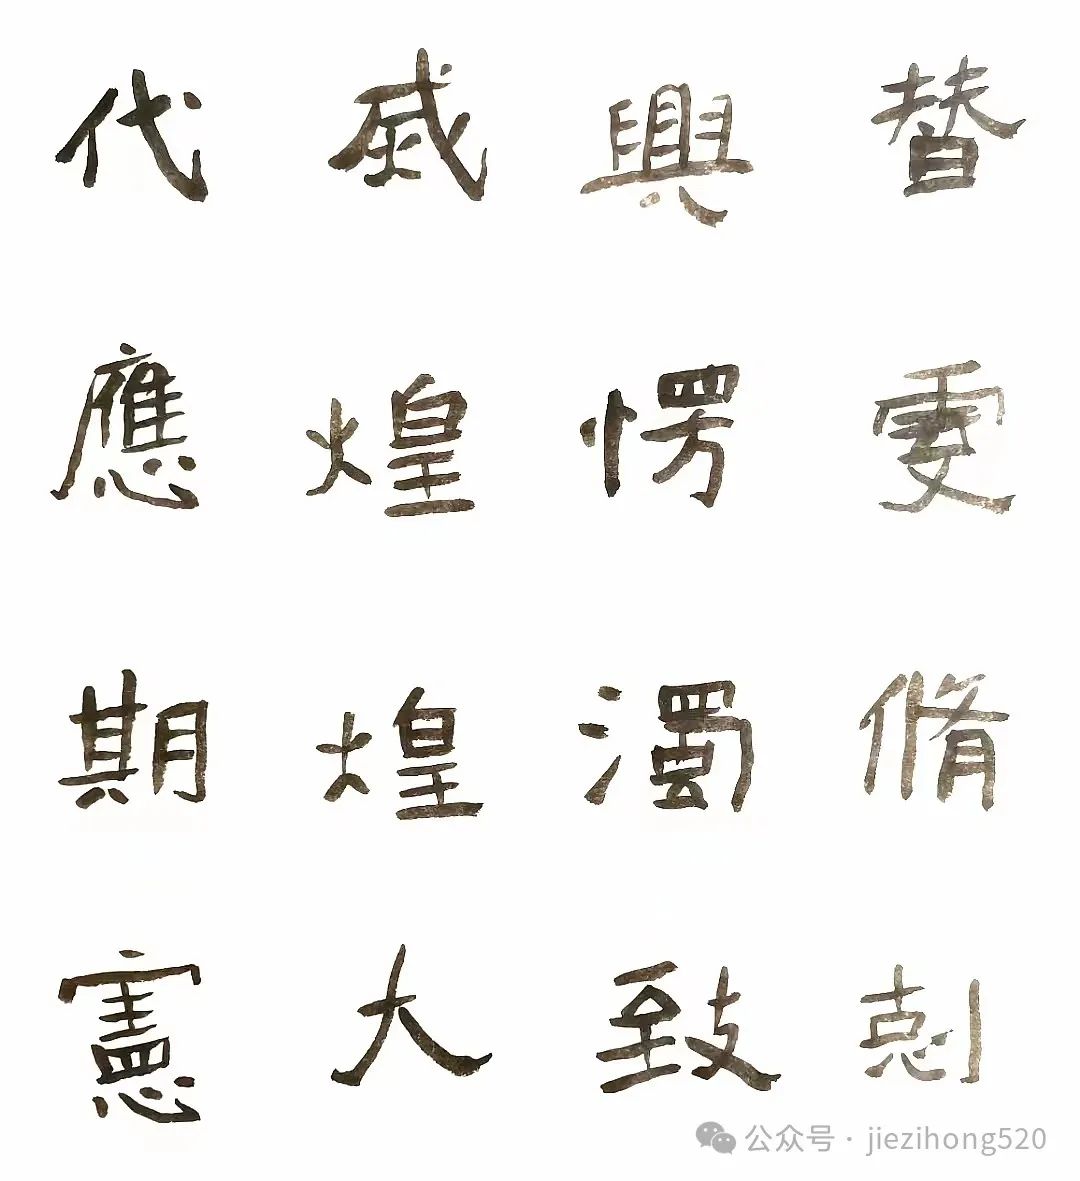 代 興 替
應 煌 愣 雯
期 煌 濁 脩
憲 大 致
公众号 · jiezihong520